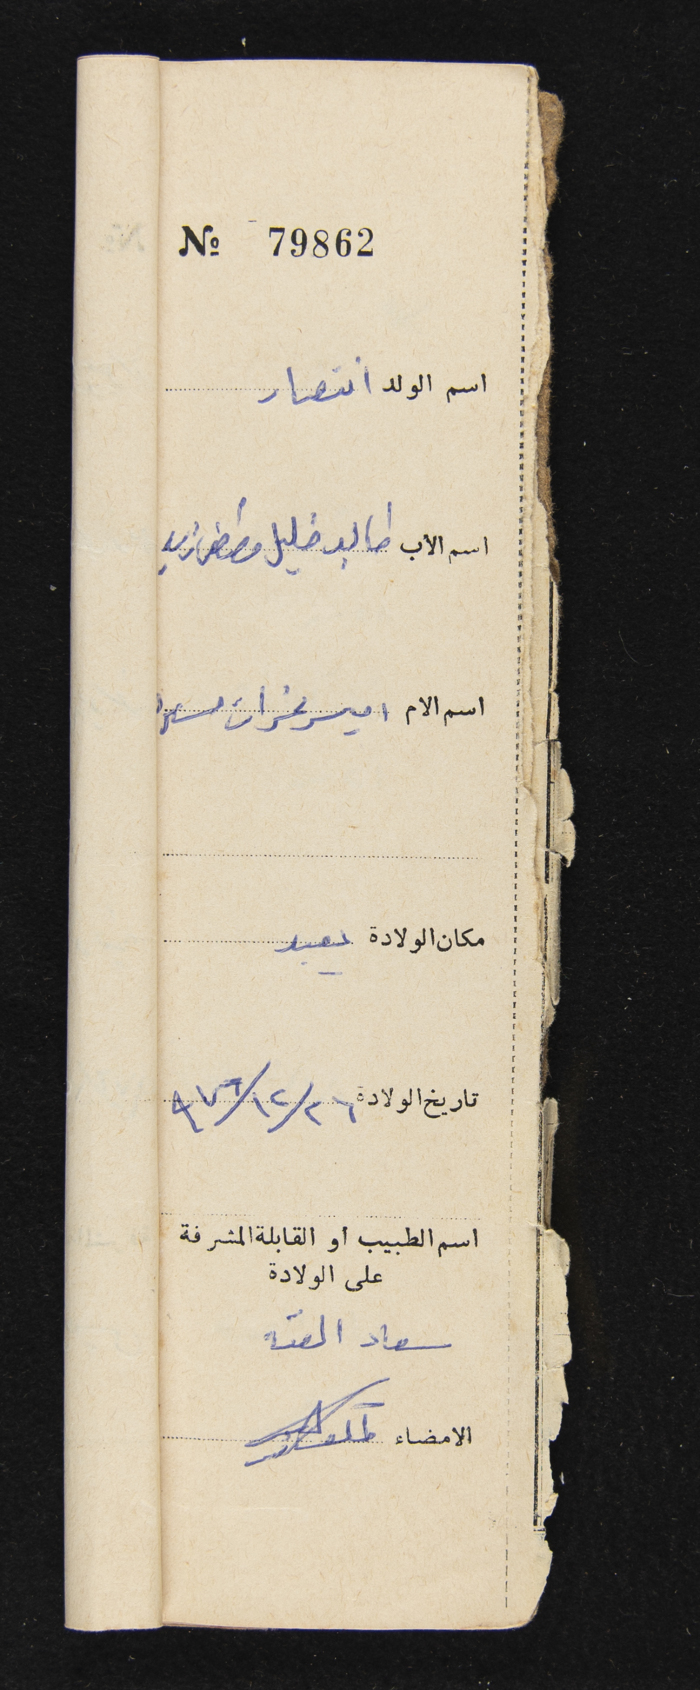 № 79862
اسم الولد انتصار
اسم الأب طالب خليل مصطفى زيد
اسم الام
مكان الولادة يعبد
تاريخ الولادة ٢٦/١٢/٩٧٦
اسم الطبيب او القابلة المشرفة
على الولادة
سعاد
الامضاء